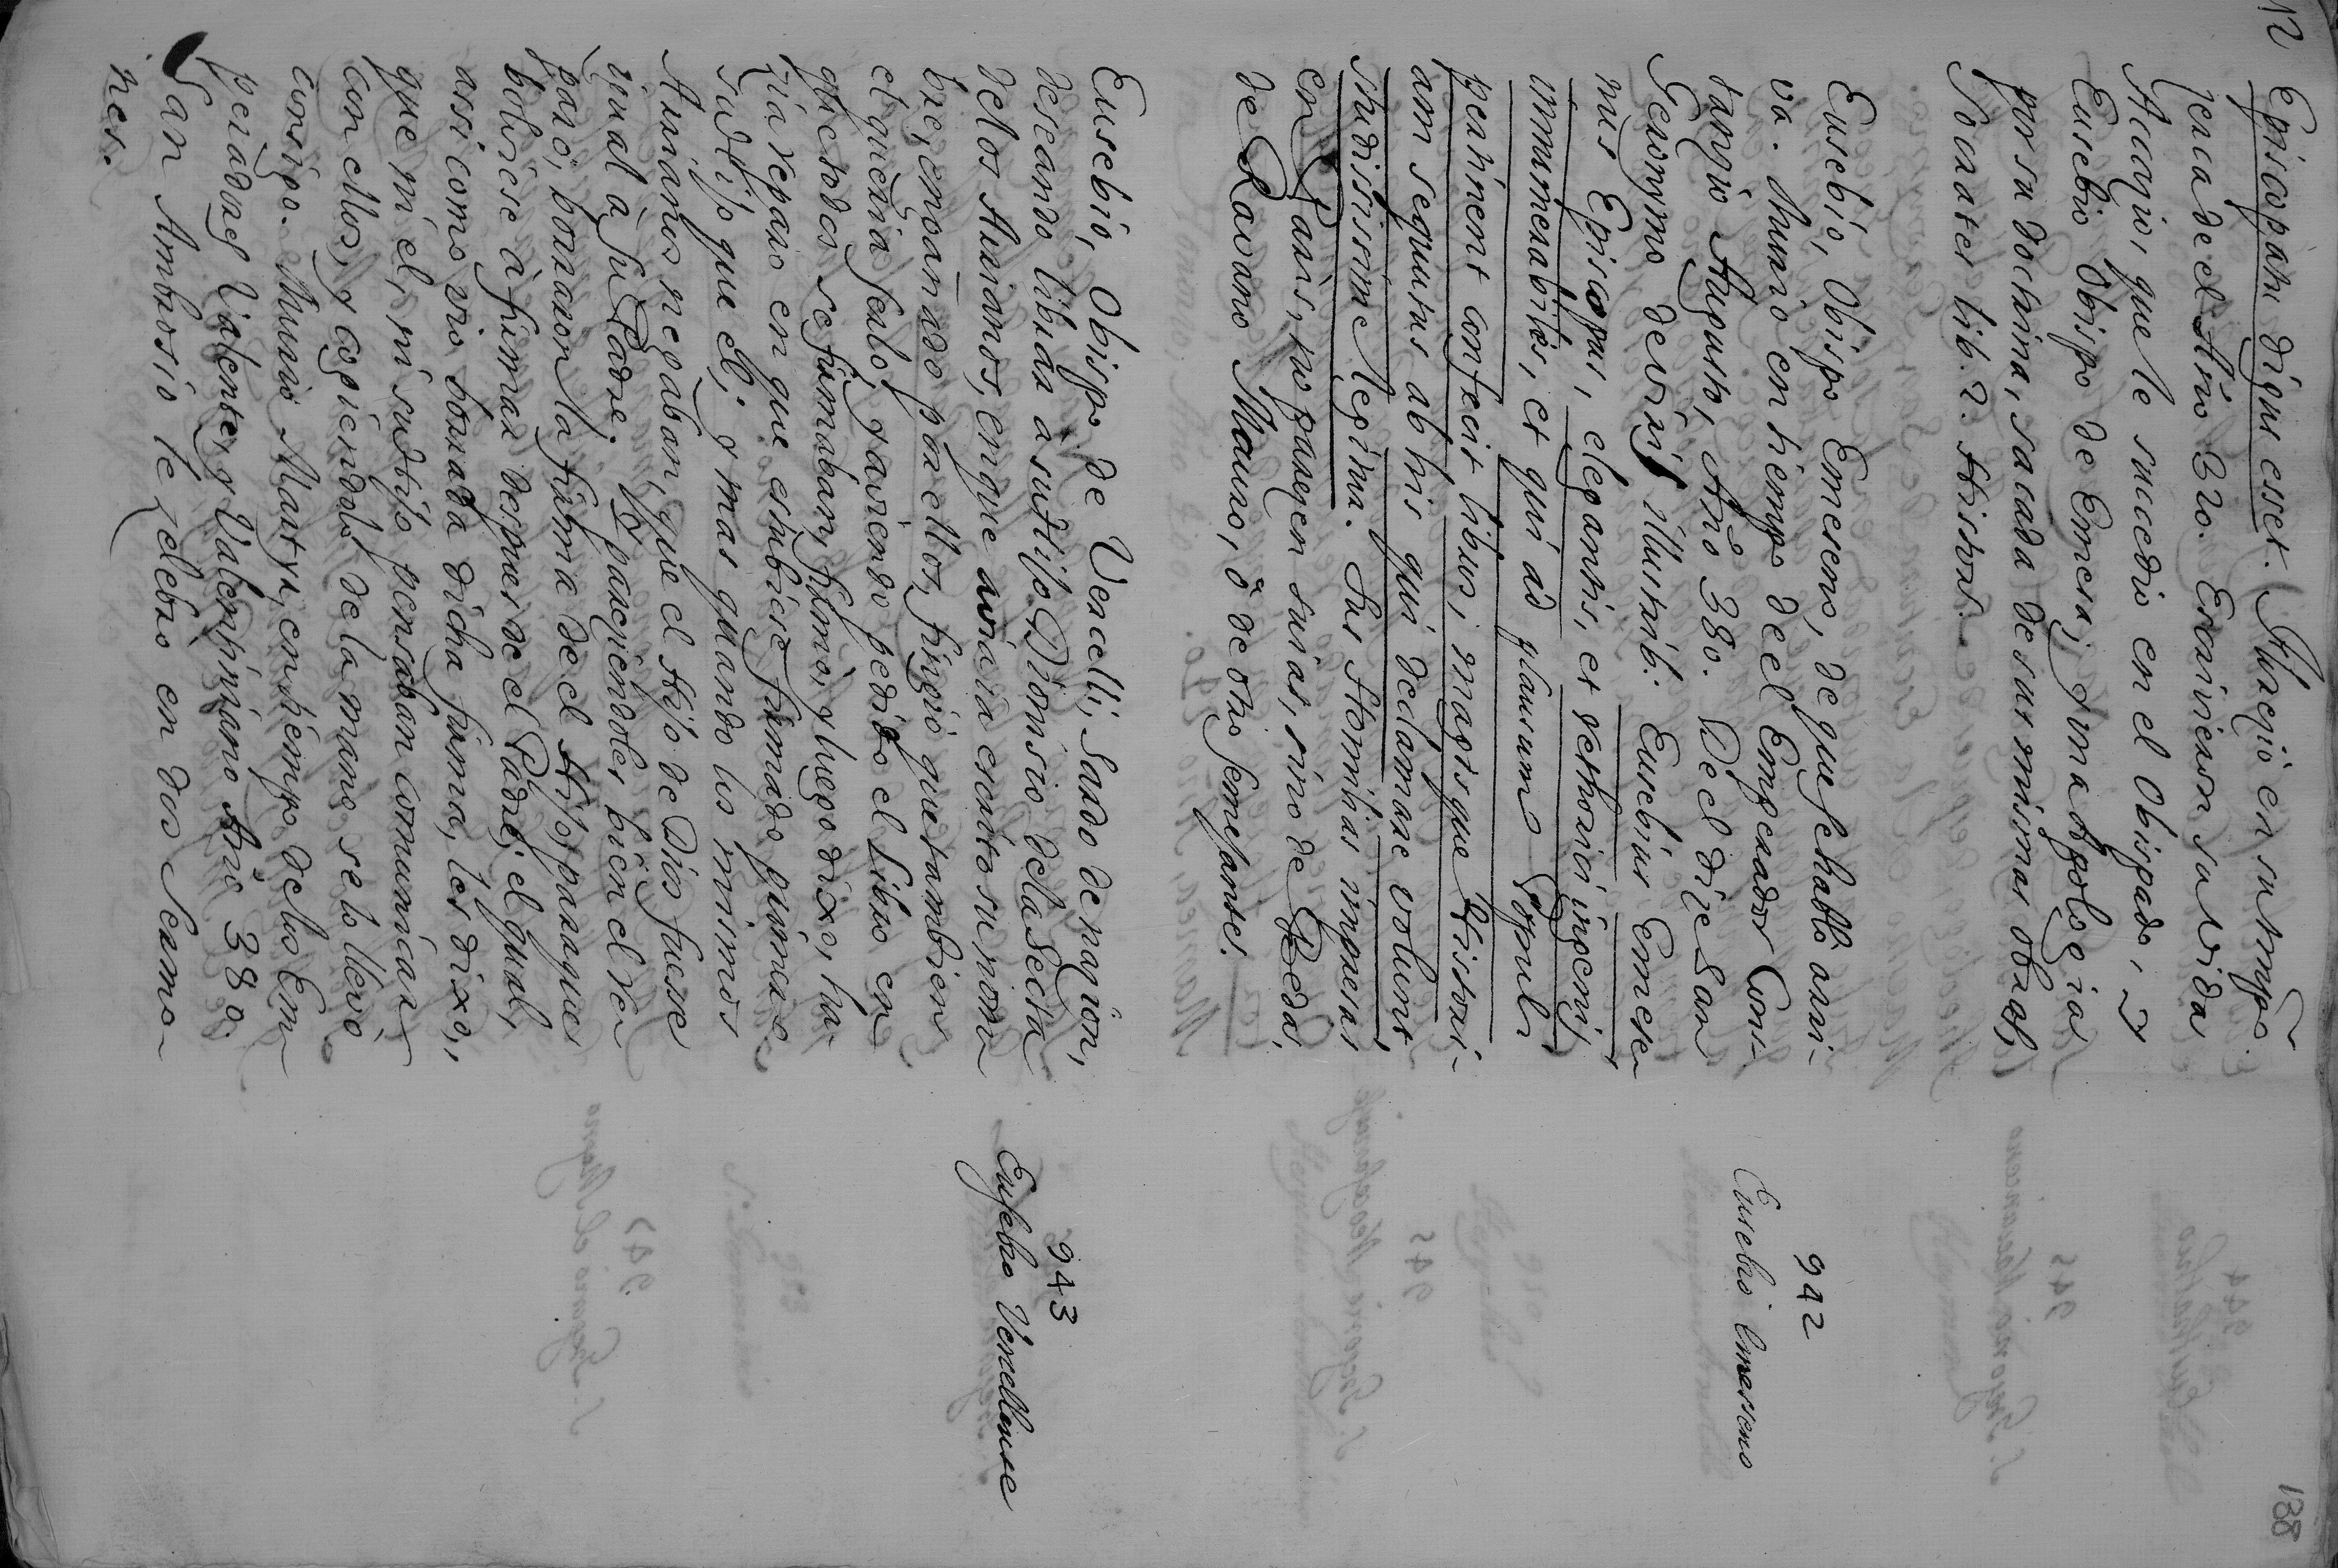 12
138
Episcopatu dignus esset. Florecio en su tmpo.
cerca de el Año 320. Escrivieron su vida
Acacio, que le succedio en el Obispado, y
Eusebio Obispo de Emesa, y una Apologia
por su doctrina, sacada de sus mismas obras,
Socrates lib. 2. Histor.
942
Eusebio Emesseno
Eusebio, Obispo Emeseno, de que se habló arri-
va. Murió en tiempo de el Emperador Cons-
tancio Augusto, Año 380. De el dize San
Geronymo de viris illustrib: Eusebius Emese-
nus Episcopus, elegantis, et rethorici ingenij,
innumerabiles, et qui ad plausum Populi
pertinent confecit libros, magisque Histori-
am sequutus ab his qui declamare volunt,
studiosissime legitur. Sus Homilias impresas
en Paris, no parecen suias, sino de Beda,
de Ravano Mauro, ò de otro semejante.
943
Eusebio Vercellense
Eusebio, Obispo de Vercelli, Sardo de nacion,
deseando librar a su Hijo Dionisio de la Secta
de los Arrianos, en que avia escrito su nom-
bre, engañado por ellos, fingió que tambien
el queria serlo, y aviendo pedido el Libro en
que todos se firmaban, firmò, y luego dixo, ha-
zia reparo en que estubiese firmado primero
su Hijo que el; y mas quando los mismos
Arrianos negaban, que el Hijo de Dios fuesse
igual à su Padre. Y pareciendoles bien el re-
paro, borraron la firma de el Hijo, paraque
bolviese à firmar despues de el Padre; el qual,
assi como vio borrada dicha firma, les dixo,
que ni el, ni su Hijo pensaban comunicar
con ellos, y cogiendolo de la mano se lo llevò
consigo. Murió Martyr, en tiempo de los Em-
peradores Valente, y Valentiniano Año 380.
San Ambrosio le celebro en dos Sermo-
nes.